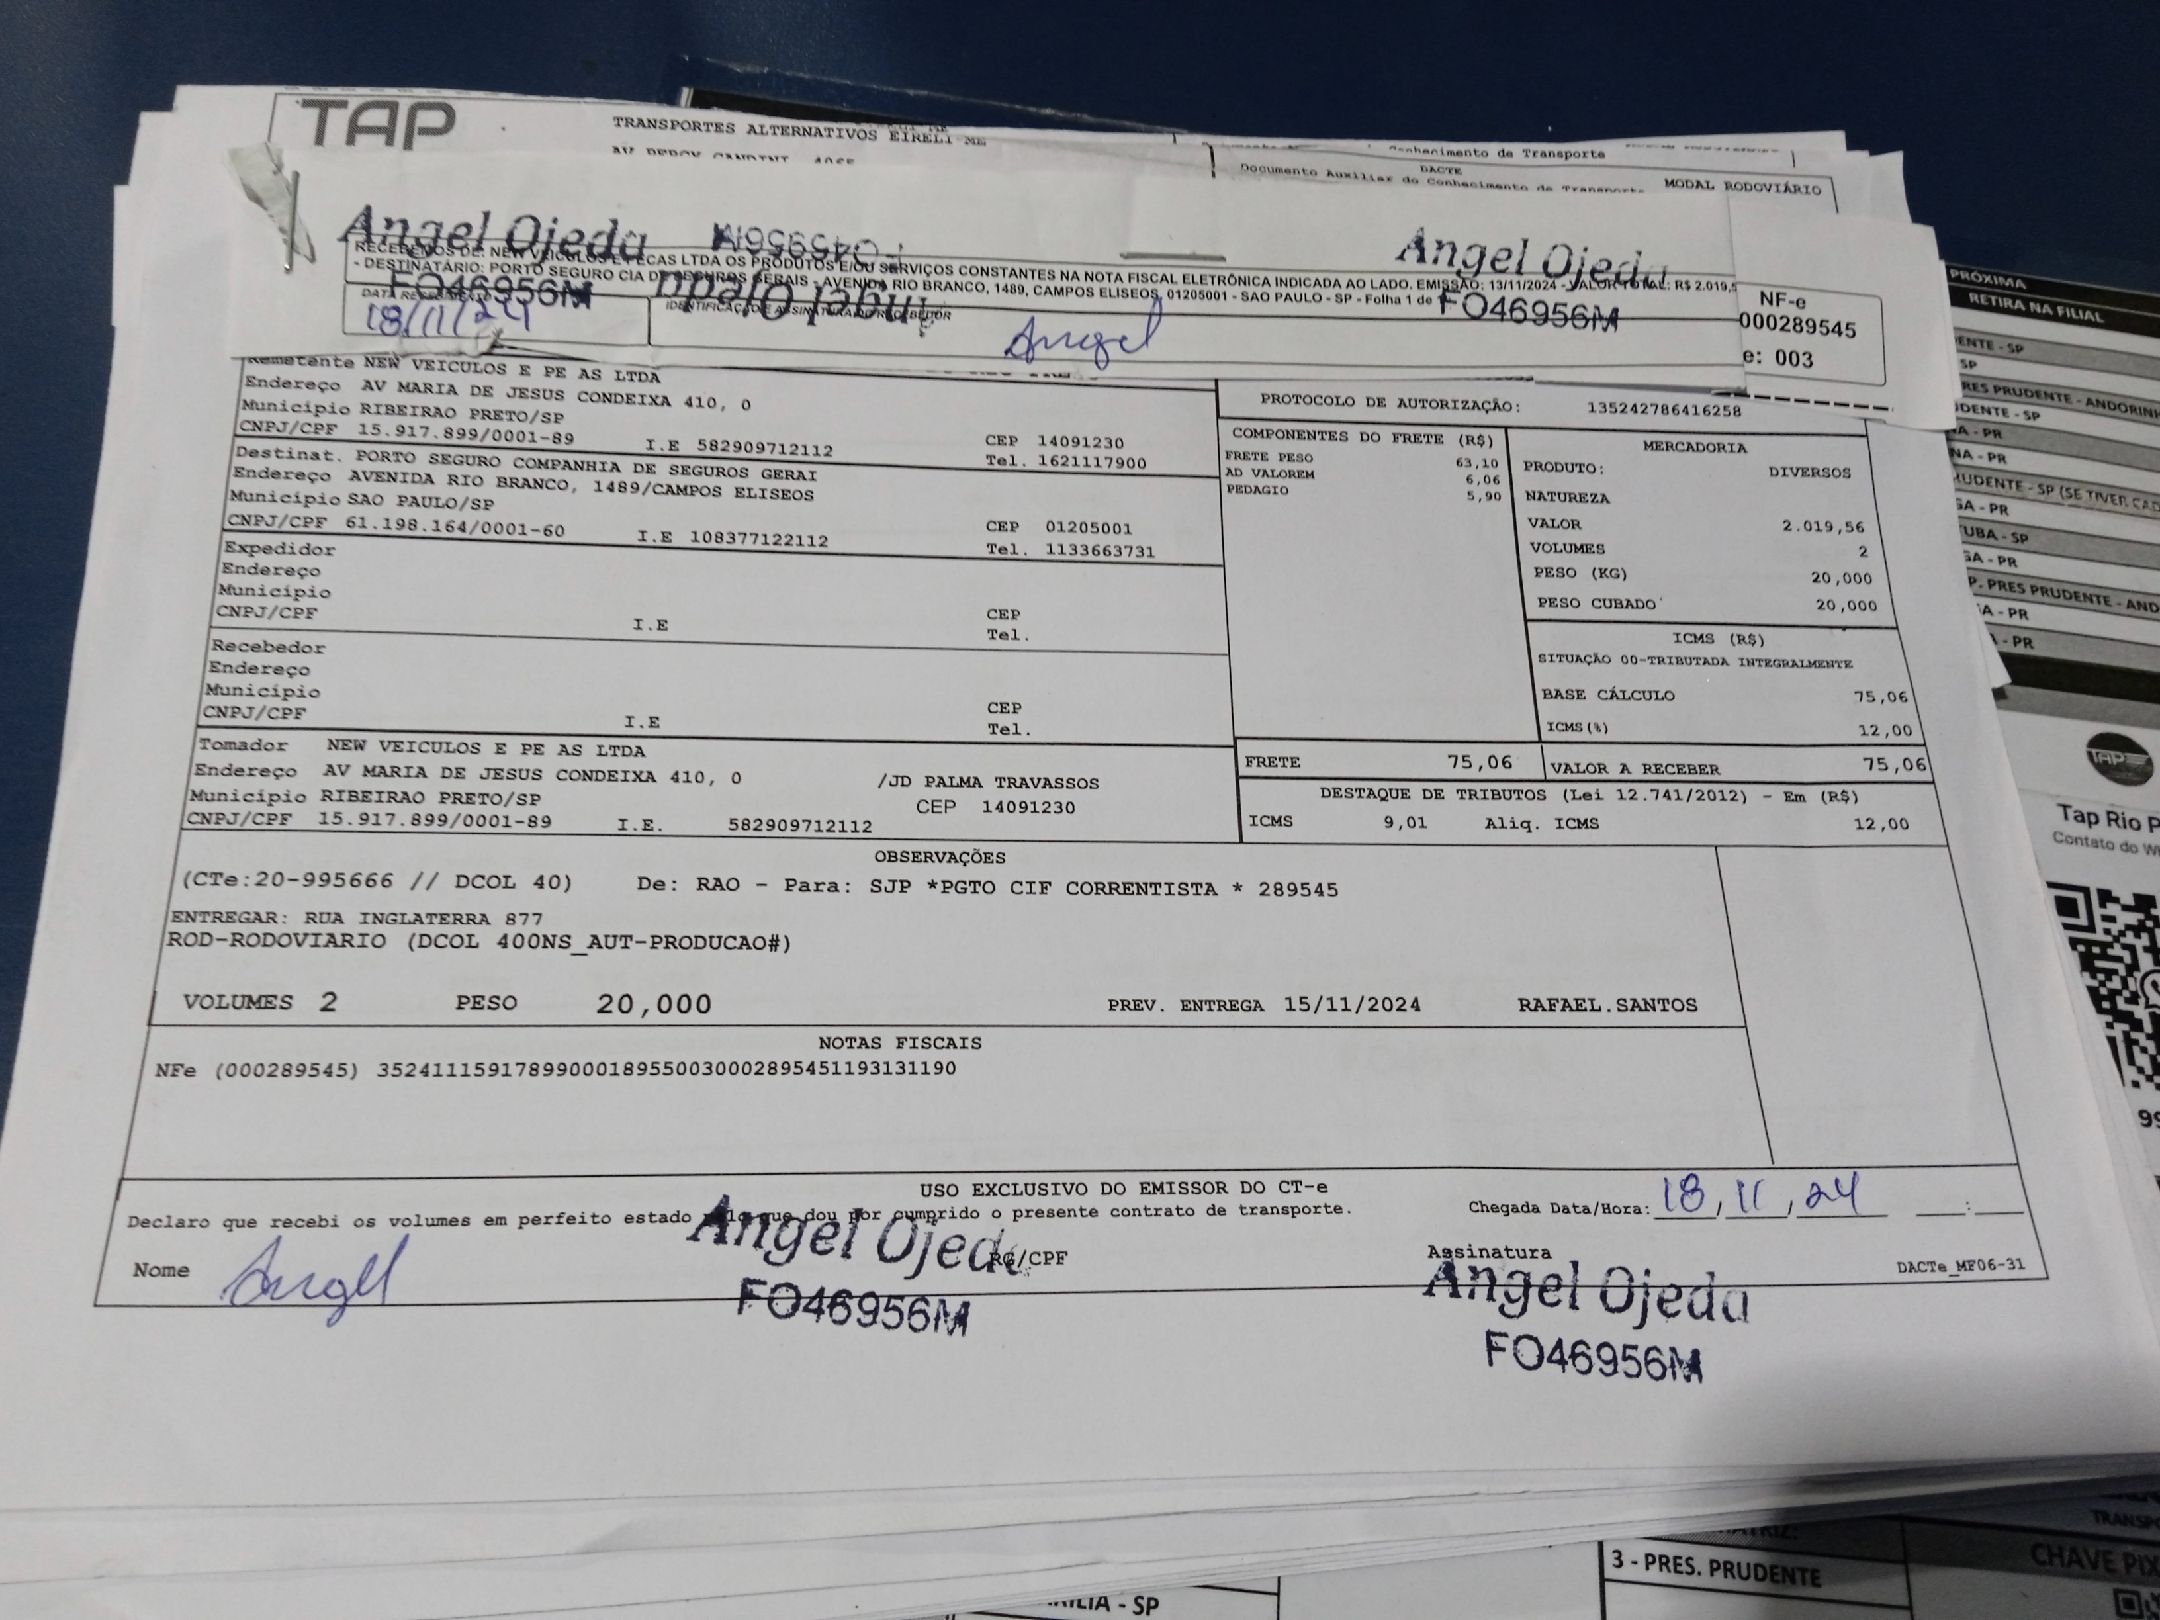 TAP
TRANSPORTES ALTERNATIVOS EIRELI-ME
Conhecimento de Transporte
DACTE
Documento Auxiliar do Conhecimento de Transporte
MODAL RODOVIÁRIO
Angel Ojeda
FO46956M
Angel Ojeda
FO46956M
Angel Ojeda
FO46956M
RECEBEMOS DE: NEW VEICULOS E PECAS LTDA OS PRODUTOS E/OU SERVIÇOS CONSTANTES NA NOTA FISCAL ELETRÔNICA INDICADA AO LADO. EMISSÃO: 13/11/2024 - VALOR TOTAL: R$ 2.019,5
- DESTINATÁRIO: PORTO SEGURO CIA DE SEGUROS GERAIS - AVENIDA RIO BRANCO, 1489, CAMPOS ELISEOS, 01205001 - SAO PAULO - SP - Folha 1 de
DATA RECEBIMENTO
18/11/24
IDENTIFICAÇÃO E ASSINATURA DO RECEBEDOR
Angel
NF-e
000289545
e: 003
Remetente NEW VEICULOS E PE AS LTDA
Endereço AV MARIA DE JESUS CONDEIXA 410, 0
Município RIBEIRAO PRETO/SP
CNPJ/CPF 15.917.899/0001-89 I.E 582909712112 CEP 14091230
Tel. 1621117900
Destinat. PORTO SEGURO COMPANHIA DE SEGUROS GERAI
Endereço AVENIDA RIO BRANCO, 1489/CAMPOS ELISEOS
Município SAO PAULO/SP
CNPJ/CPF 61.198.164/0001-60 I.E 108377122112 CEP 01205001
Tel. 1133663731
Expedidor
Endereço
Município
CNPJ/CPF I.E CEP
Tel.
Recebedor
Endereço
Município
CNPJ/CPF I.E CEP
Tel.
Tomador NEW VEICULOS E PE AS LTDA
Endereço AV MARIA DE JESUS CONDEIXA 410, 0 /JD PALMA TRAVASSOS
Município RIBEIRAO PRETO/SP CEP 14091230
CNPJ/CPF 15.917.899/0001-89 I.E. 582909712112
PROTOCOLO DE AUTORIZAÇÃO: 135242786416258
COMPONENTES DO FRETE (R$)
FRETE PESO 63,10
AD VALOREM 6,06
PEDAGIO 5,90
MERCADORIA
PRODUTO: DIVERSOS
NATUREZA
VALOR 2.019,56
VOLUMES 2
PESO (KG) 20,000
PESO CUBADO 20,000
ICMS (R$)
SITUAÇÃO 00-TRIBUTADA INTEGRALMENTE
BASE CÁLCULO 75,06
ICMS(%) 12,00
FRETE 75,06 VALOR A RECEBER 75,06
DESTAQUE DE TRIBUTOS (Lei 12.741/2012) - Em (R$)
ICMS 9,01 Aliq. ICMS 12,00
OBSERVAÇÕES
(CTe:20-995666 // DCOL 40) De: RAO - Para: SJP *PGTO CIF CORRENTISTA * 289545
ENTREGAR: RUA INGLATERRA 877
ROD-RODOVIARIO (DCOL 400NS_AUT-PRODUCAO#)
VOLUMES 2 PESO 20,000 PREV. ENTREGA 15/11/2024 RAFAEL.SANTOS
NOTAS FISCAIS
NFe (000289545) 35241115917899000189550030002895451193131190
USO EXCLUSIVO DO EMISSOR DO CT-e
Declaro que recebi os volumes em perfeito estado pelo que dou por cumprido o presente contrato de transporte.
Chegada Data/Hora: 18/11/24 __:__
Nome Angel
RG/CPF
Assinatura
DACTe_MF06-31
Angel Ojeda
FO46956M
Angel Ojeda
FO46956M
PRÓXIMA
RETIRA NA FILIAL
ENTE - SP
SP
RES PRUDENTE - ANDORINH
DENTE - SP
A - PR
NA - PR
UDENTE - SP (SE TIVER CAD
GA - PR
UBA - SP
GA - PR
P. PRES PRUDENTE - AND
A - PR
A - PR
TAP
Tap Rio P
Contato do W
99
TRANSPO
CHAVE PIX
3 - PRES. PRUDENTE
ILIA - SP